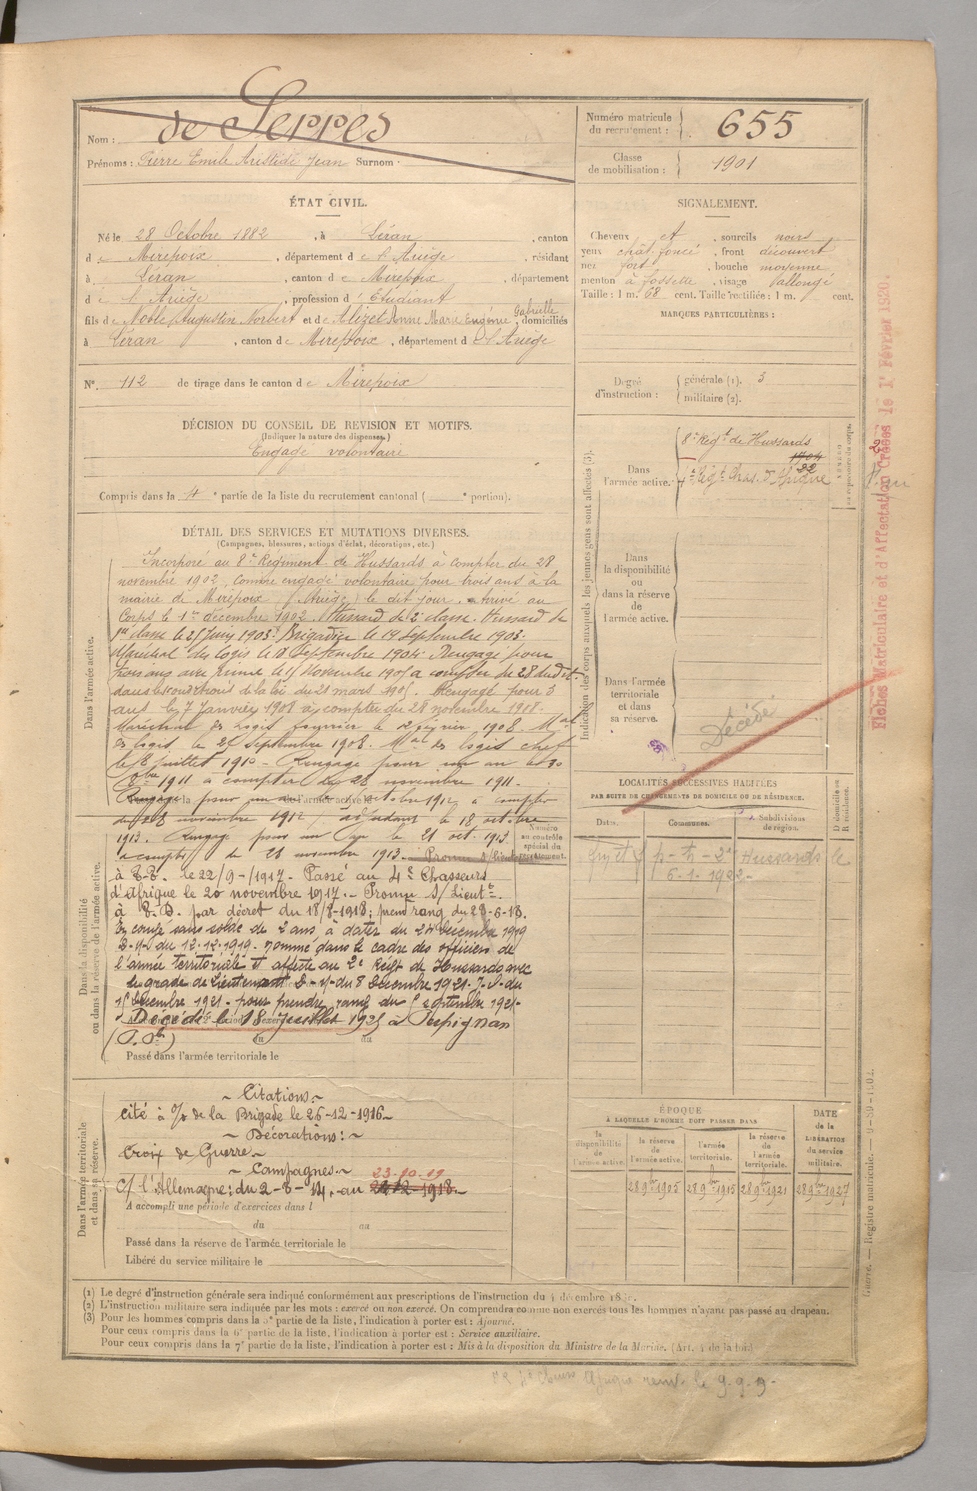 Nom : de Serres
Prénoms : Pierre Emile Aristide Jean Surnom :
Numéro matricule du recrutement : 655
Classe de mobilisation : 1901
ÉTAT CIVIL.
Né le 28 Octobre 1882, à Léran, canton
de Mirepoix, département de l'Ariège, résidant
à Léran, canton de Mirepoix, département
de l'Ariège, profession d'étudiant
fils de Noble Augustin Norbert et de Alizet Anne Marie Eugénie Gabrielle, domiciliés
à Léran, canton de Mirepoix, département de l'Ariège
N°. 112 de tirage dans le canton de Mirepoix
SIGNALEMENT.
Cheveux et, sourcils noirs
yeux chât. foncé, front découvert
nez fort, bouche moyenne
menton à fossette, visage allongé
Taille : 1 m. 68 cent. Taille rectifiée : 1 m. cent.
MARQUES PARTICULIÈRES :
Degré d'instruction : générale (1). 3
militaire (2).
DÉCISION DU CONSEIL DE REVISION ET MOTIFS.
(Indiquer la nature des dispenses.)
Engagé volontaire
Compris dans la 4e partie de la liste du recrutement cantonal ( e portion).
DÉTAIL DES SERVICES ET MUTATIONS DIVERSES.
(Campagnes, blessures, actions d'éclat, décorations, etc.)
Dans l'armée active.
Incorporé au 8e Régiment de Hussards à compter du 28
novembre 1902, comme engagé volontaire pour trois ans à la
mairie de Mirepoix (Ariège) le dit jour. Arrivé au
Corps le 1er décembre 1902. Hussard de 2e classe. Hussard de
1re classe le 25 Juin 1903. Brigadier le 14 Septembre 1903.
Maréchal des logis le Septembre 1904. Rengagé pour
trois ans avec prime le Novembre 1905 à compter du 28 dudit
dans les conditions de la loi du 21 mars 1905. Rengagé pour 3
ans le 7 Janvier 1908 à compter du 28 novembre 1908.
Maréchal des Logis fourrier le février 1908. Mal
des logis le Septembre 1908. Mal des logis chef
le juillet 1910 - Rengagé pour un an le 30
8bre 1911 à compter du 28 novembre 1911.
Rengagé pour un an octobre 1912 à compter
du 28 novembre 1912, adjudant le 18 octobre
1913. Rengagé pour un an le 21 oct. 1913
à compter du 28 novembre 1913. Promu S/Lieutenant
à T.T. le 22/9-/1917- Passé au 4e Chasseurs
d'Afrique le 20 novembre 1917.- Promu S/Lieutt
à T.D. par décret du 18/8-1918; prend rang du 28-6-18.
En congé sans solde de 2 ans, à dater du 24 décembre 1919
D.M. du 12.12.1919. nommé dans le cadre des officiers de
l'armée territoriale et affecté au 2e Régt de Hussards avec
le grade de Lieutenant D-M du 8 Décembre 1921. J.O. du
15 Décembre 1921 - pour prendre rang du Septembre 1921-
Décédé le 18 Juillet 1925 à Perpignan
(P.O.)
Numéro au contrôle spécial du recrutement.
Dans la disponibilité ou dans la réserve de l'armée active.
Passé dans l'armée territoriale le
~ Citations ~
Cité à l'o/ de la Brigade le 26-12-1916~
~ Décorations : ~
Croix de Guerre ~
~ Campagnes. ~ 23.10.19
C/ l'Allemagne : du 2-8-14.- au 1918.-
Dans l'armée territoriale et dans sa réserve.
A accompli une période d'exercices dans l
du au
Passé dans la réserve de l'armée territoriale le
Libéré du service militaire le
Indication des corps auxquels les jeunes gens sont affectés (3).
Dans l'armée active.
8e Régt de Hussards
4e Régt Chas. d'Afrique
Dans la disponibilité ou dans la réserve de l'armée active.
Dans l'armée territoriale et dans sa réserve.
Décédé
LOCALITÉS SUCCESSIVES HABITÉES
PAR SUITE DE CHANGEMENTS DE DOMICILE OU DE RÉSIDENCE.
Dates. Communes. Subdivisions de région. D domicile ou R résidence.
2e Hussards le
6-1-1922-
ÉPOQUE
À LAQUELLE L'HOMME DOIT PASSER DANS
la disponibilité de l'armée active. la réserve de l'armée active. l'armée territoriale. la réserve de l'armée territoriale.
DATE de la LIBÉRATION du service militaire.
28 9bre 1905 28 9bre 1915 28 9bre 1921 28 9bre 1927
Fiches Matriculaire et d'Affectation Créées le 1er Février 1920.
Guerre. — Registre matricule. — 9-89-1902.
(1) Le degré d'instruction générale sera indiqué conformément aux prescriptions de l'instruction du 4 décembre
(2) L'instruction militaire sera indiquée par les mots : exercé ou non exercé. On comprendra comme non exercés tous les hommes n'ayant pas passé au drapeau.
(3) Pour les hommes compris dans la 5e partie de la liste, l'indication à porter est : Ajourné.
Pour ceux compris dans la 6e partie de la liste, l'indication à porter est : Service auxiliaire.
Pour ceux compris dans la 7e partie de la liste, l'indication à porter est : Mis à la disposition du Ministre de la Marine. (Art. 4 de la loi)
Afrique le 9-9-19-